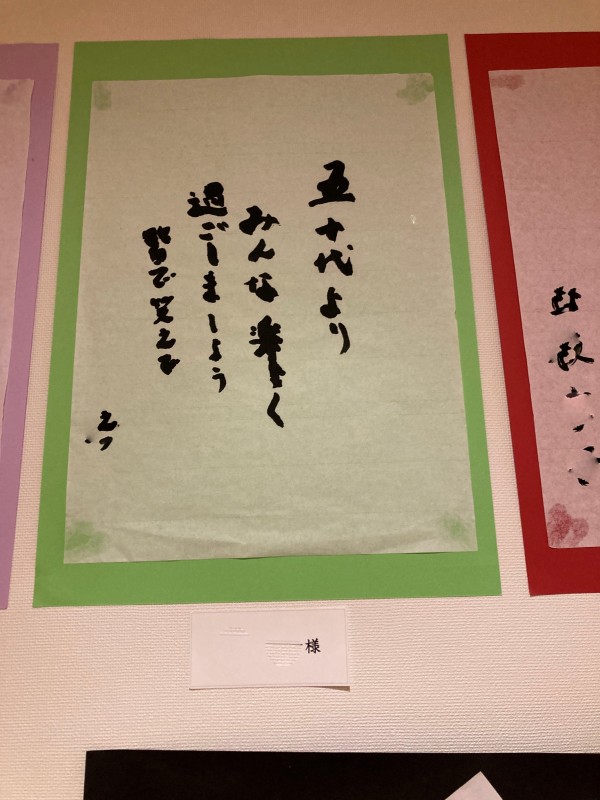 五十代より
みんな楽しく
過ごしましょう
皆で笑えて
えつ
様